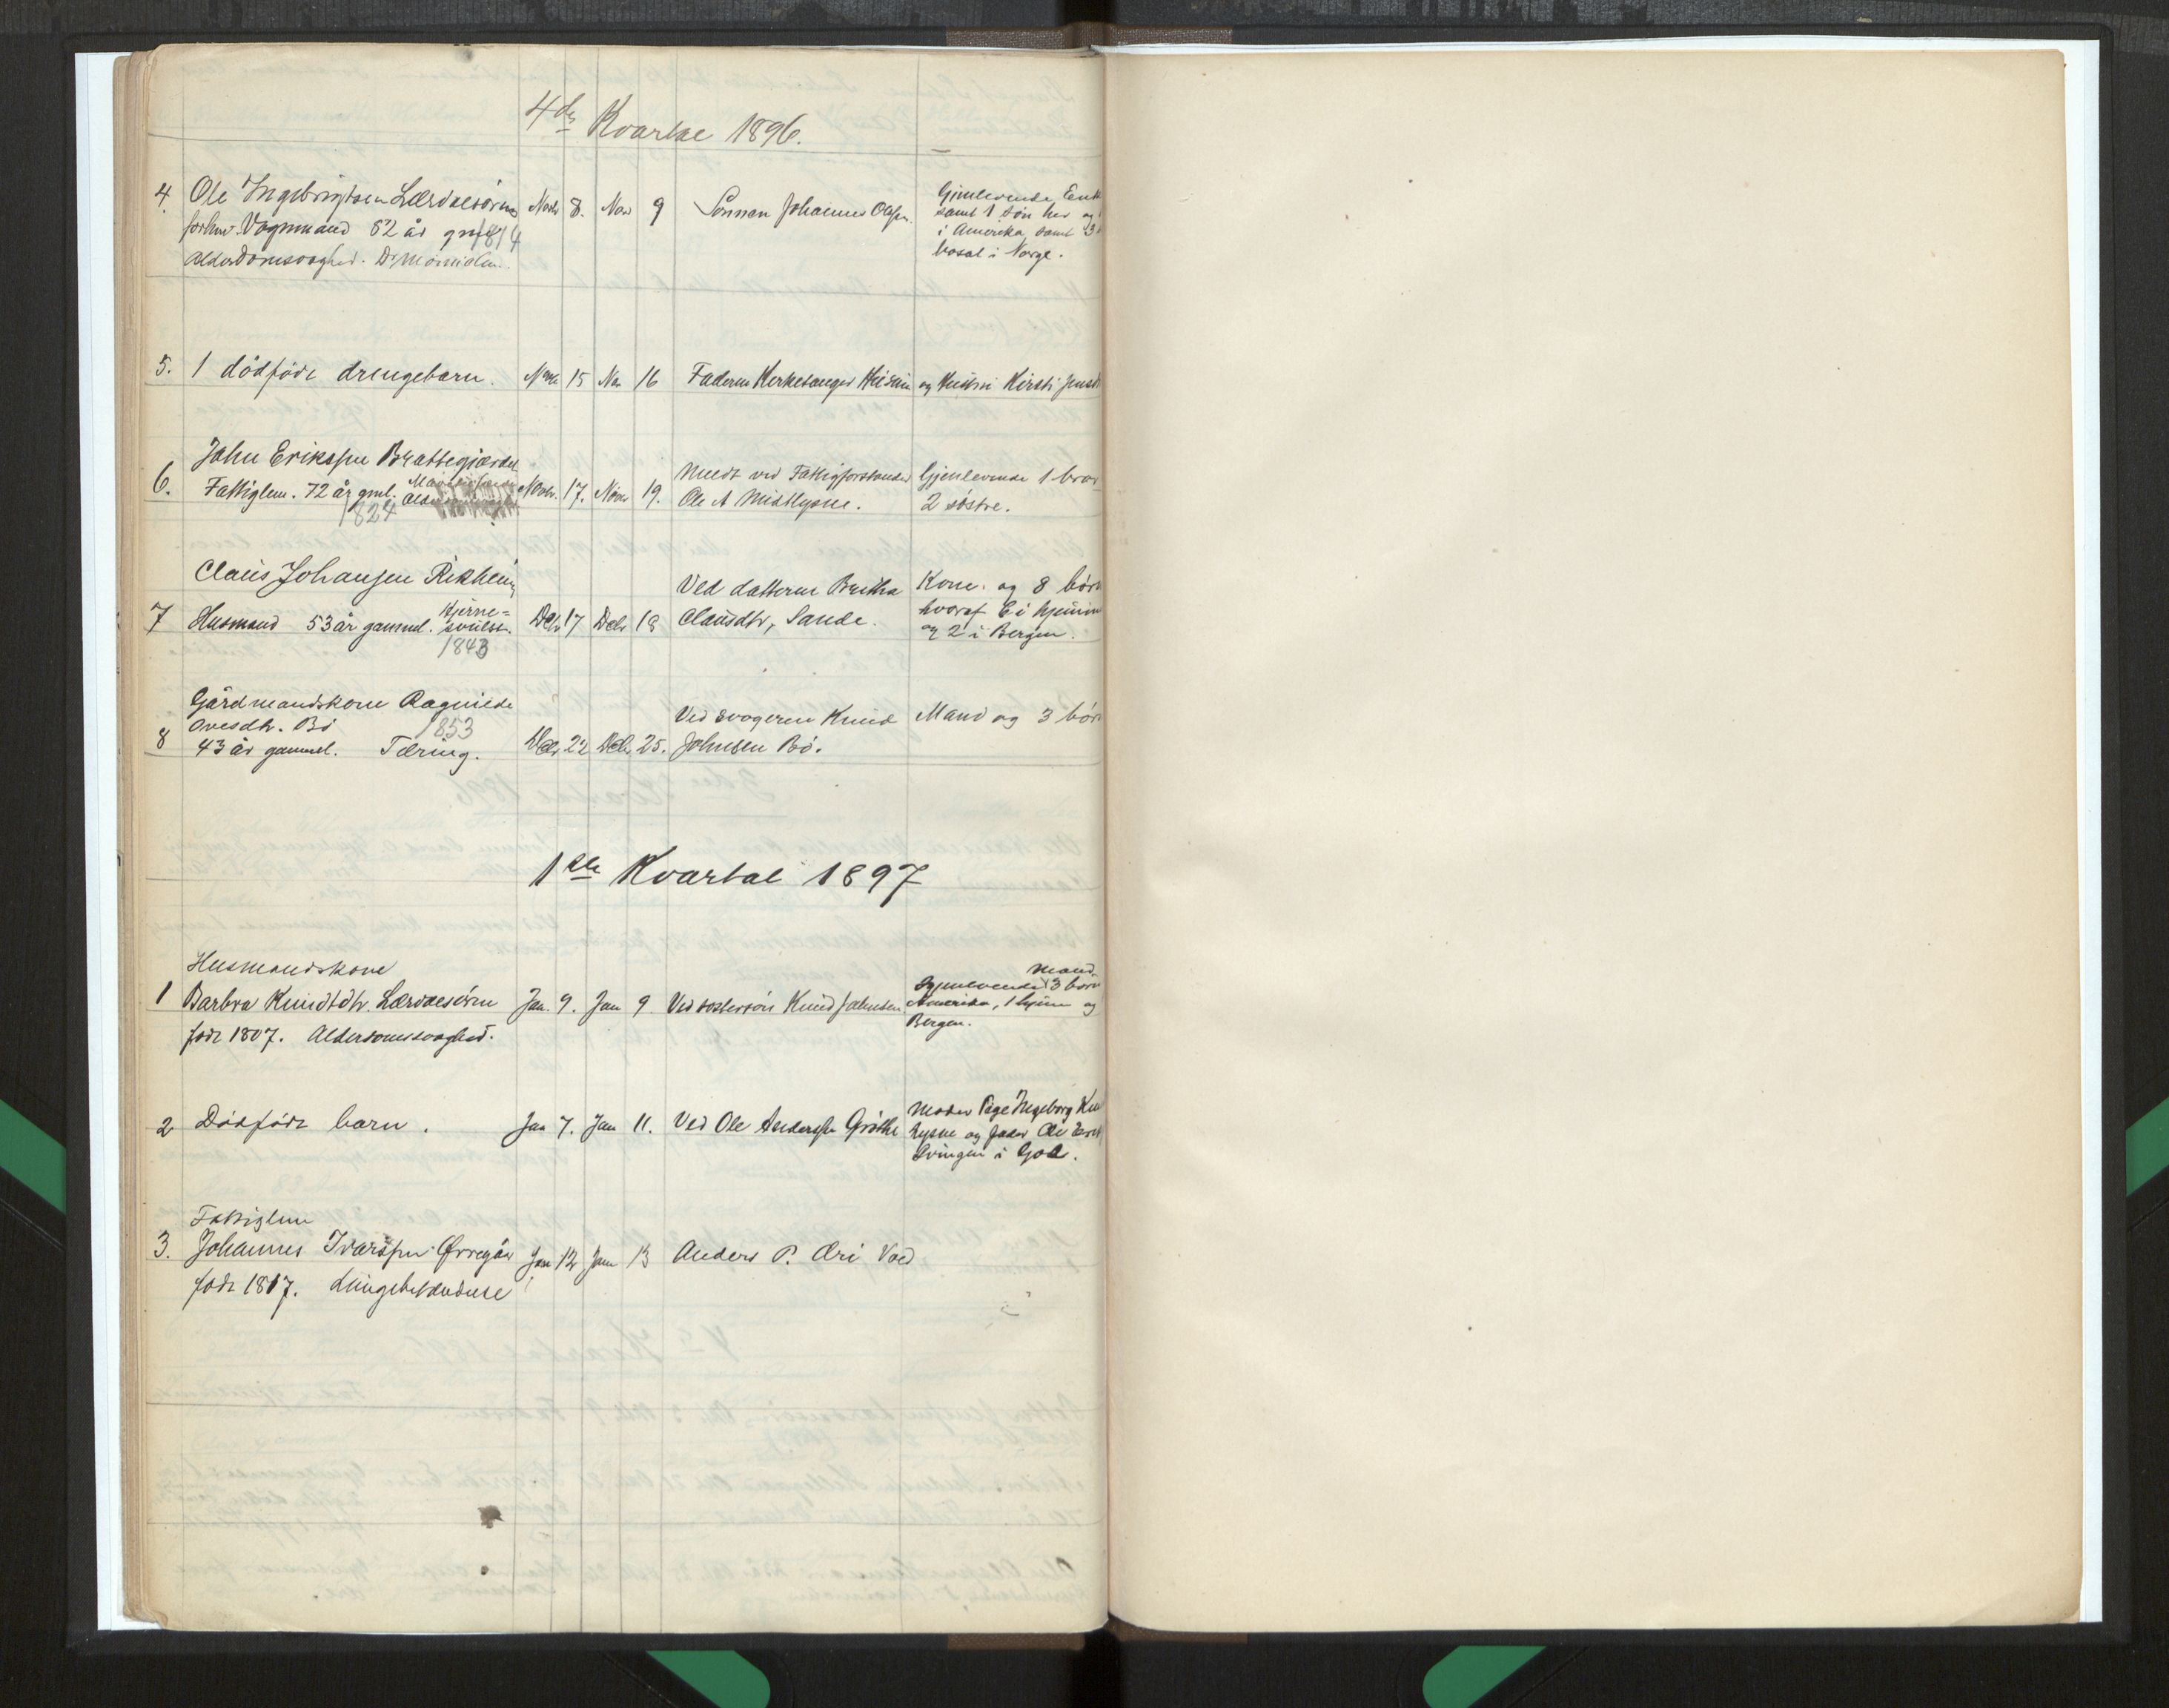 4de Kvartal 1896.
4. Ole Ingebrigtsen Lærdalsören Novbr 8. Nov 9 Sönnen Johannes Olsen. Gjenlevende Enke
forhv. Vognmand 82 år gml 1814 samt 1 sön her og
Alderdomssvaghed. i Amerika, samt 3
bosat i Norge.
5. 1 dödföde drengebarn. Novbr 15 Nov 16 Faderen Kirkesanger og Hustru Kirsti
John Eriksen Brattegjærdet
6. Fattiglem. 72 år gml. Novbr. 17. Novbr 19. Meldt ved Fattigforstander Gjenlevende 1 bror
1824 Ole A Midtlysne. 2 söstre.
Claus Johansen Rikheim
7 Husmand 53 år gammel. Hjerne=
svulst. Debr 17 Debr 18 Ved datteren Brita Kone og 8 börn
1843 Clausdtr, Sande. hvoraf 6 i hjemme
og 2 i Bergen.
Gårdmandskone Ragnilde
Ovesdtr. Bö 1853
8 43 år gammel. Tæring. Debr 22 Debr 25. Ved svogeren Knud Mand og 3 börn
Johnsen Bö.
1ste Kvartal 1897
Husmandskone
1 Barbra Knudtdtr. Lærdalsören Jan. 9. Jan 9 Ved söstersön Knud Johnsen. Mand
Gjenlevende 3 börn
födt 1807. Alderdomssvaghed. Amerika, 1 hjeme og
Bergen.
2 Dödfödt barn. Jan 7. Jan 11. Ved Ole Andersen Gröthe Moder Pige Ingeborg
Lysne og fader Ole
i Gol.
Fattiglem
3. Johannes Ivarsen Örregår Jan 12 Jan 13 Anders P. Öri Vold
födt 1817. Lungebetændelse